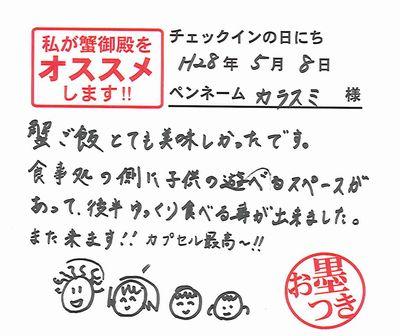 私が蟹御殿を
オススメ
します!!
チェックインの日にち
H28年 5月 8日
ペンネーム カラスミ 様
蟹ご飯とても美味しかったです。
食事処の側に子供の遊べるスペースが
あって、後半ゆっくり食べる事が出来ました。
また来ます!! カプセル最高〜!!
お墨
つき